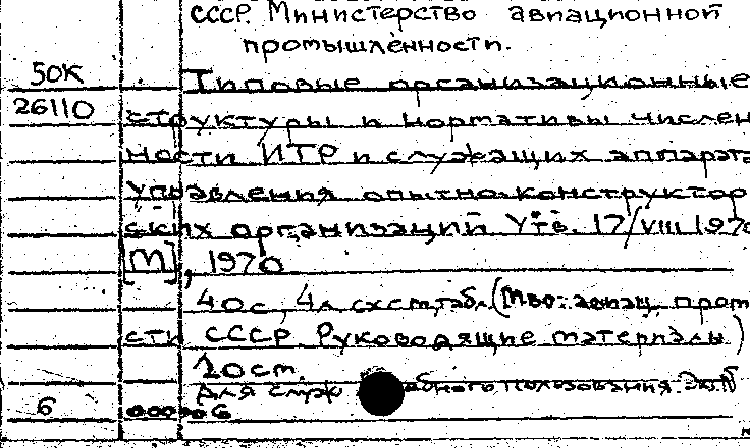 СССР. Министерство авиационной
промышленности.
50К Типовые организационные
26110 структуры и нормативы числен
ности ИТР и служащих аппарата
управления опытно-конструктор
ских организаций Утв. 17/VIII 1970
[М], 1970
40 с, 4 л. схем, табл. (М-во авиац. пром
сти СССР. Руководящие материалы)
20 см.
Для служебного пользования. Экз. №
6 000006